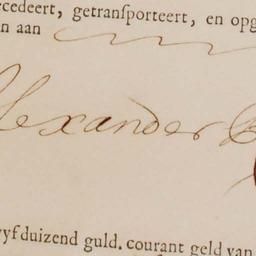 ecedeert, getranſporteert, en opg
n aan
lexander
yfduizend guld. courant geld van